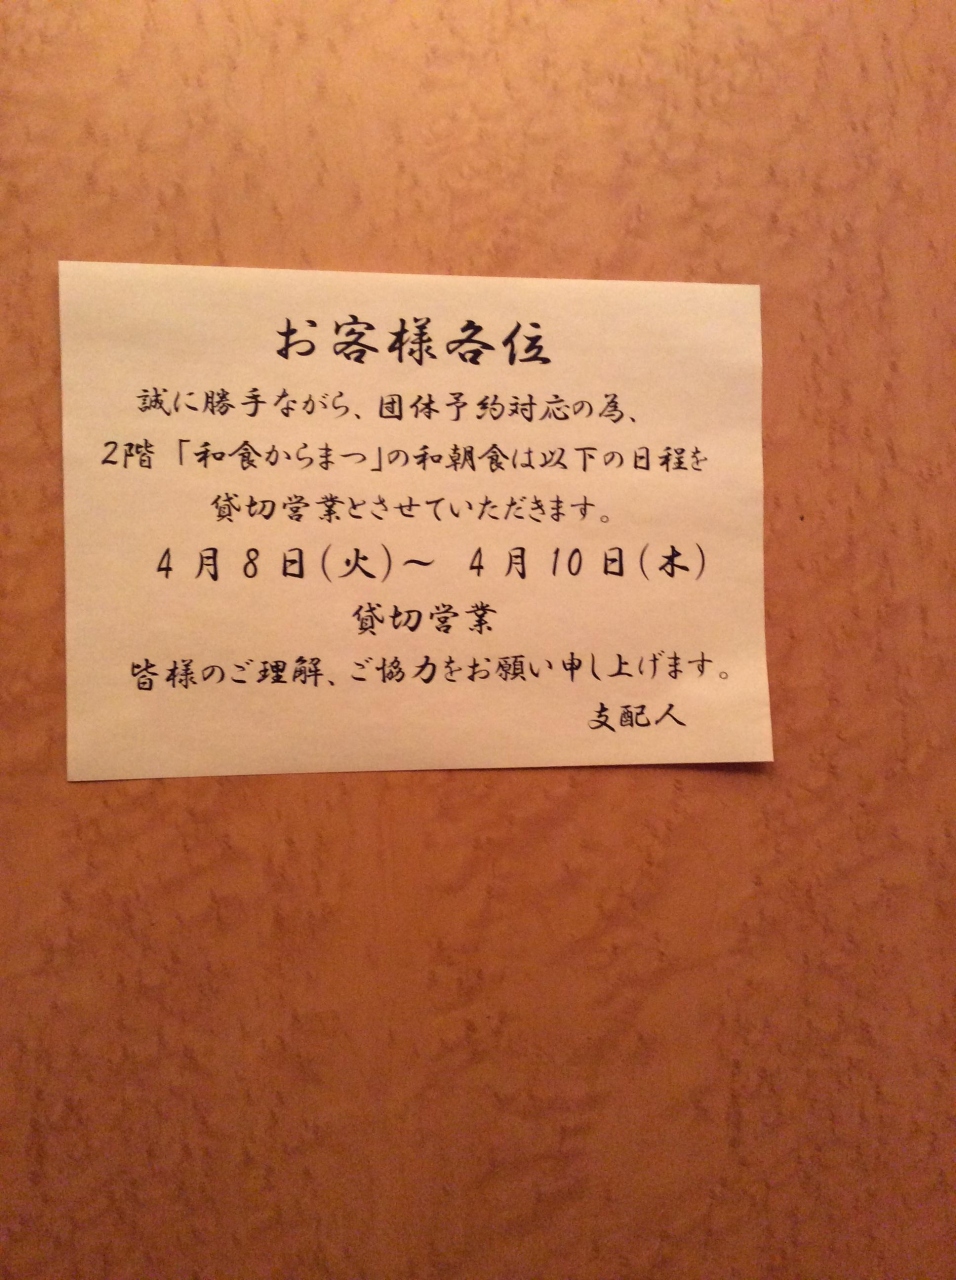 お客様各位
誠に勝手ながら、団体予約対応の為、
2階「和食からまつ」の和朝食は以下の日程を
貸切営業とさせていただきます。
4月8日(火)～ 4月10日(木)
貸切営業
皆様のご理解、ご協力をお願い申し上げます。
支配人